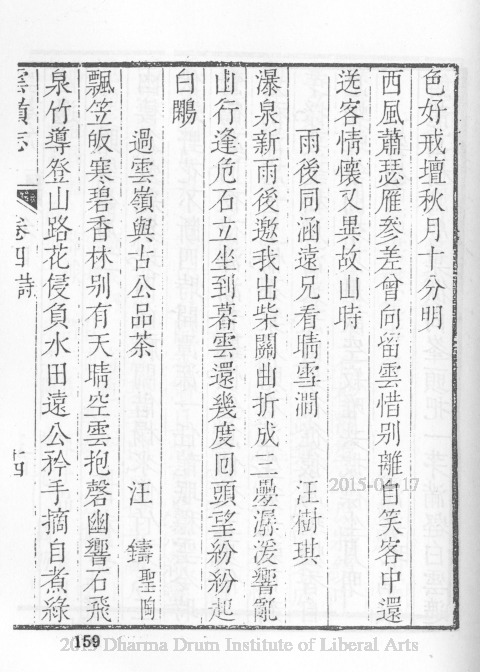 色好戒壇秋月十分明
西風蕭瑟雁參差曾向畱雲惜別離自笑客中還
送客情懷又異故山時
雨後同涵遠兄看晴雪澗 汪樹琪
瀑泉新雨後邀我出柴關曲折成三疊潺湲響亂
山行逢危石立坐到暮雲還幾度囘頭望紛紛起
白鷴
過雲嶺與古公品茶 汪鑄聖陶
飄笠皈寒碧香林別有天晴空雲抱磬幽響石飛
泉竹導登山路花侵負水田遠公矜手摘自煮綠
雲嶺志 卷四詩 十四
159
2015-04-17
2015 Dharma Drum Institute of Liberal Arts